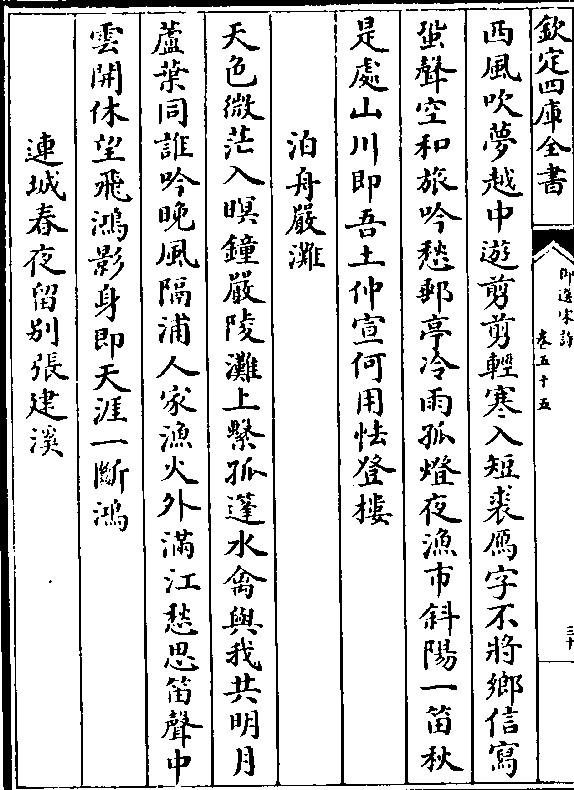 欽定四庫全書
御選宋詩
卷五十五
三十
西風吹夢越中遊剪剪輕寒入短裘鴈字不將鄉信寫
蛩聲空和旅吟愁郵亭冷雨孤燈夜漁市斜陽一笛秋
是處山川即吾土仲宣何用怯登樓
泊舟嚴灘
天色微茫入暝鐘嚴陵灘上繫孤蓬水禽與我共明月
蘆葉同誰吟晚風隔浦人家漁火外滿江愁思笛聲中
雲開休望飛鴻影身即天涯一斷鴻
連城春夜留别張建溪